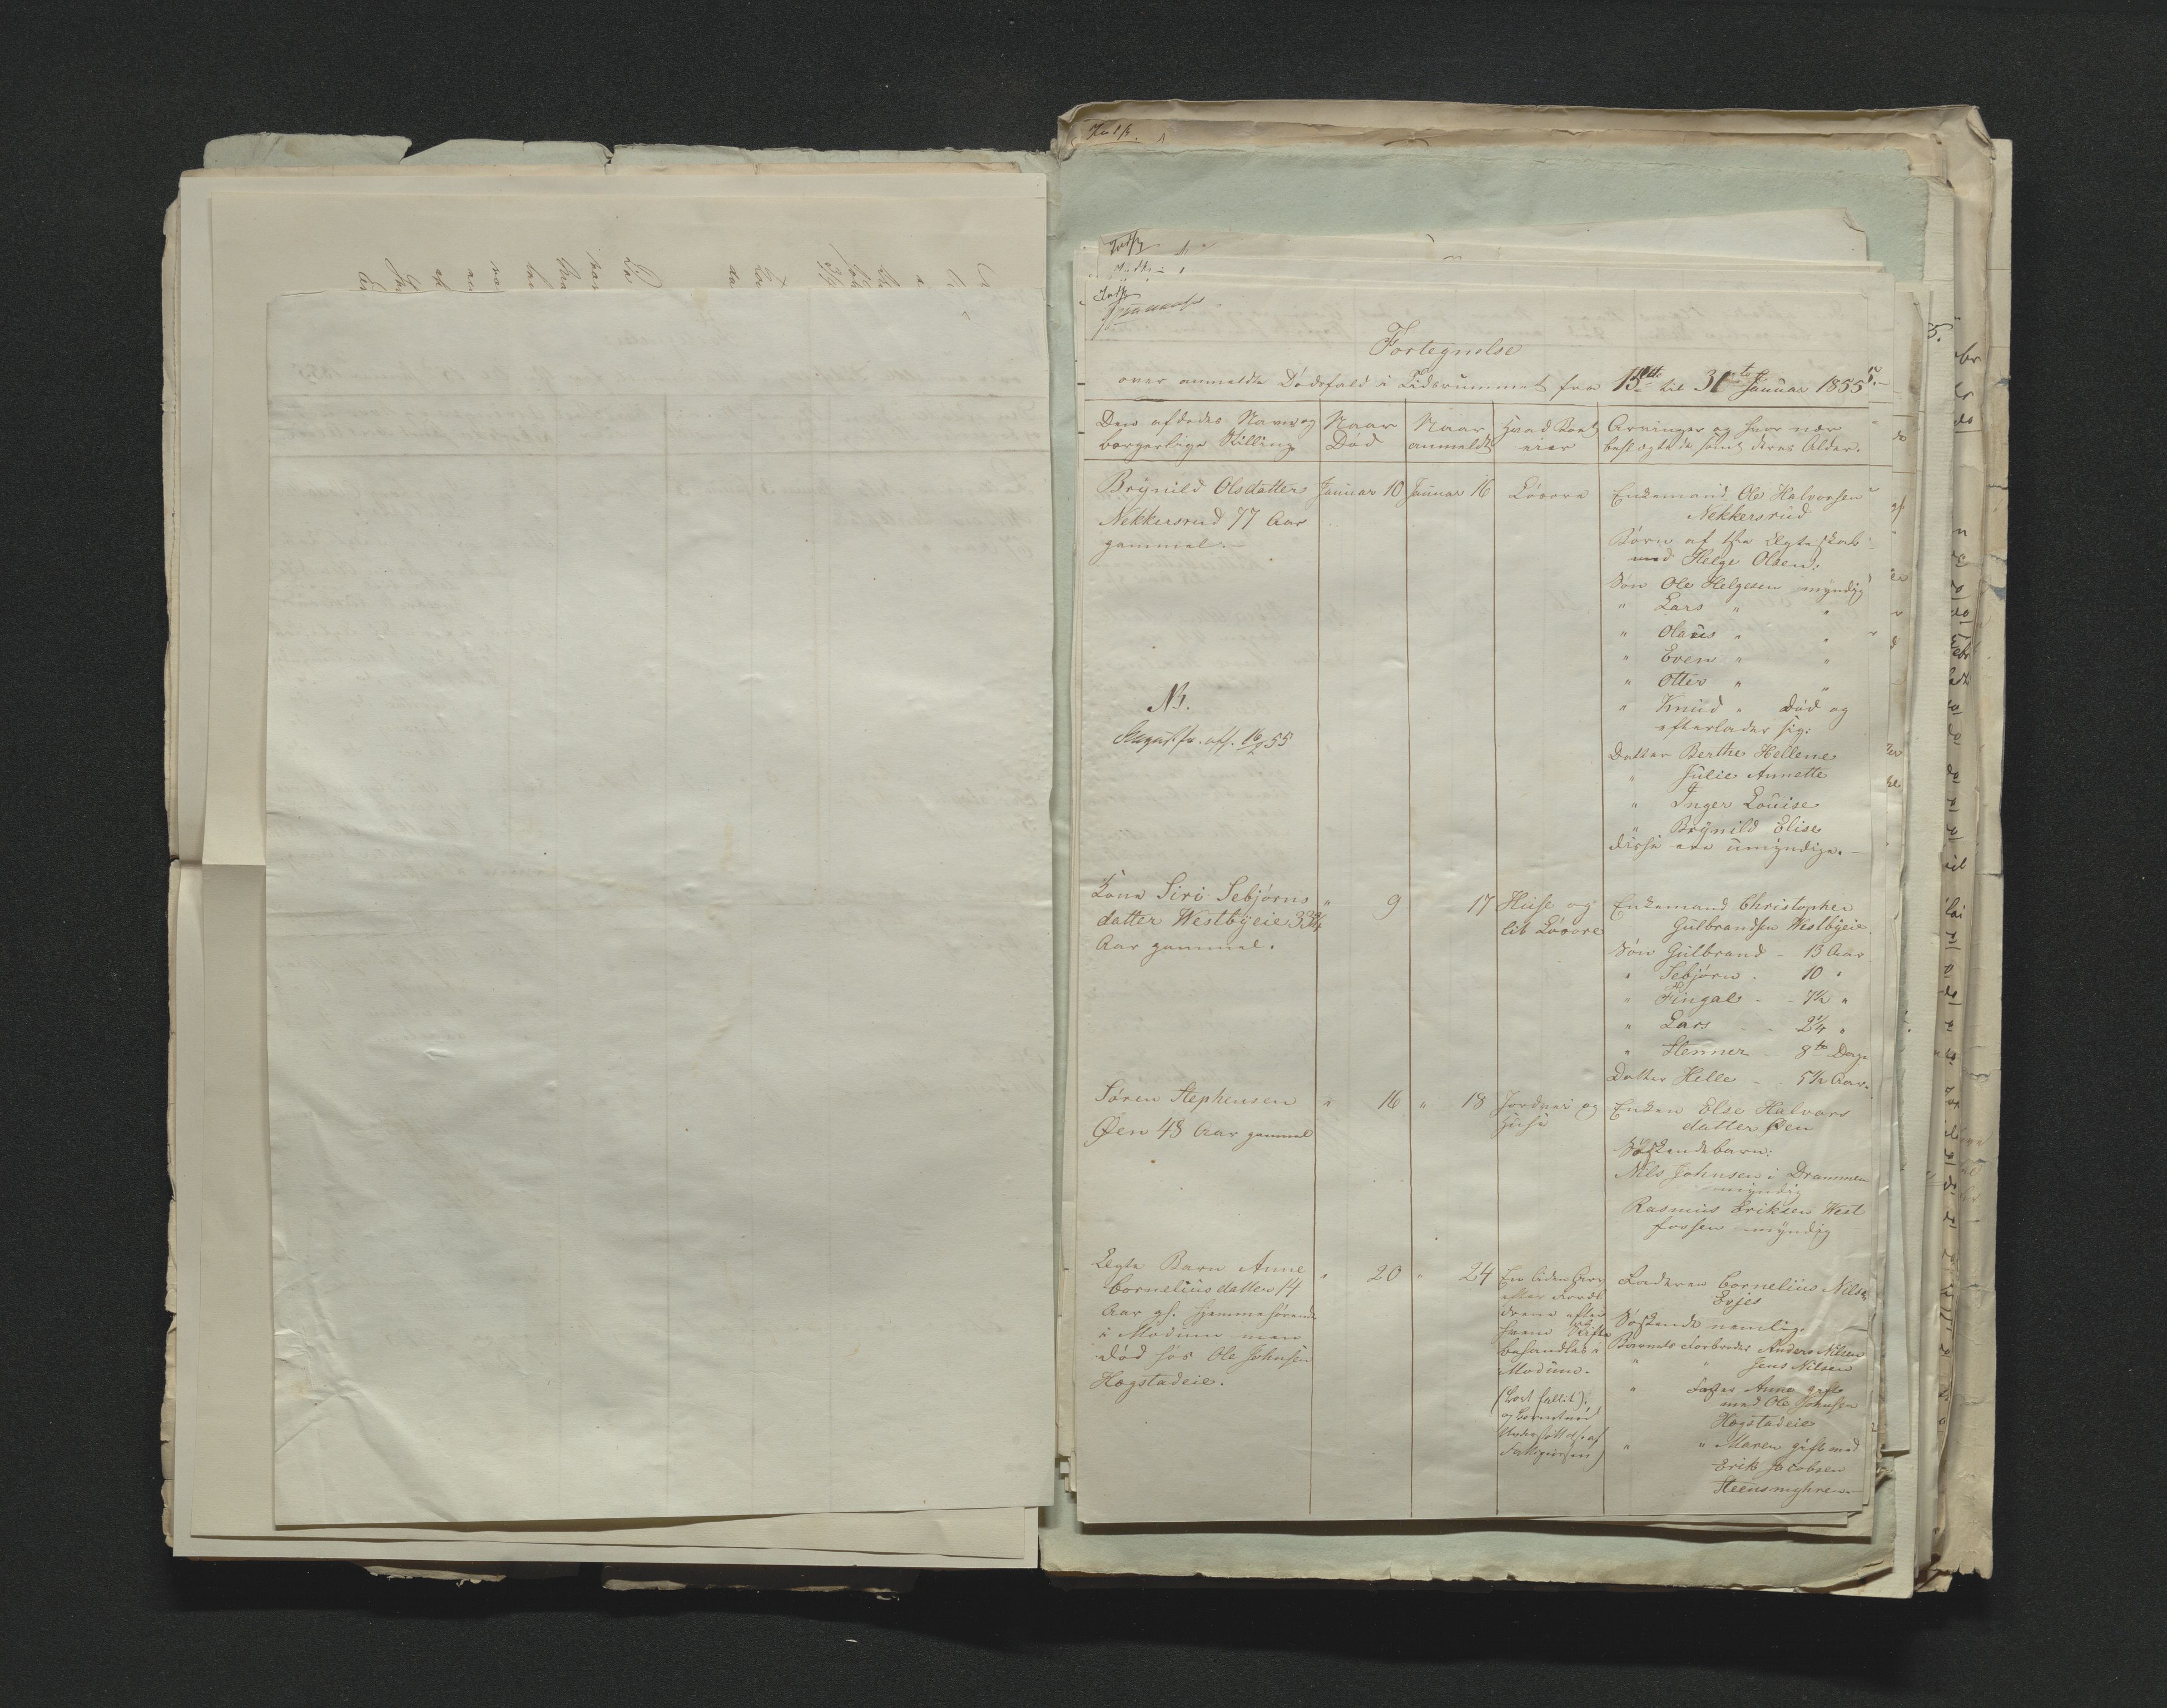 Fortegnelse
over anmeldte Dødsfald i Tidsrummet fra 15de til 31te Januar 1855.
Den afdødes Navn og
borgerlige Stilling
Naar
Død
Naar
anmeldt
Hvad Boet
eier
Arvinger og hvor nær
beslægtede samt deres Alder.
Brÿnild Olsdatter
Nekkersrud 77 Aar
gammel.
Januar 10
Januar 16
Løsøre
Enkemand Ole Halvorsen
Nekkersrud
Børn af 1ste Ægteskab
med Helge Olsen:
Søn Ole Helgesen myndig
" Lars " "
" Olaus " "
" Even " "
" Otter " "
" Knud " død og
efterlader sig:
Datter Berthe Hellene
" Julie Annette
" Inger Louise
" Brÿnild Elise
disse ere umyndige.
NB.
Kone Siri Sebjørns
datter Westbÿeie 33 3/4
Aar gammel.
" 9
17
Huse og
lit Løsøre
Enkemand Christopher
Gulbrandsen Westbÿeie.
Søn Gulbrand - 13 Aar
" Sebjørn - 10 "
" Fingal - 7 1/2 "
" Lars - 2 1/4 "
" Stenner - 8te Dage
Datter Helle - 5 1/2 Aar.
Søren Stephensen
Øen 48 Aar gammel
" 16
" 18
Jordvei og
Huse
Enken Else Halvors
datter Øen
Søskendebarn:
Nils Johnsen i Drammen
myndig
Rasmus Eriksen West
fossen myndig
Ægte Barn Anne
Corneliusdatter 14
Aar gl. hjemmehørende
i Modum men
død hos Ole Johnsen
Hogstadeie.
" 20
" 24
En liden Arv
efter
efter
hvem Skifte
behandles i
Modum.
Faderen Cornelius Nilsen
Evjes
Søskende nemlig.
Barnets Farbroder Anders Nilsen
" " Jens Nilsen
" Faster Anne gift
med Ole Johnsen
Hogstadeie
" " Maren gift med
Erik Jacobsen
Steensmyhren.